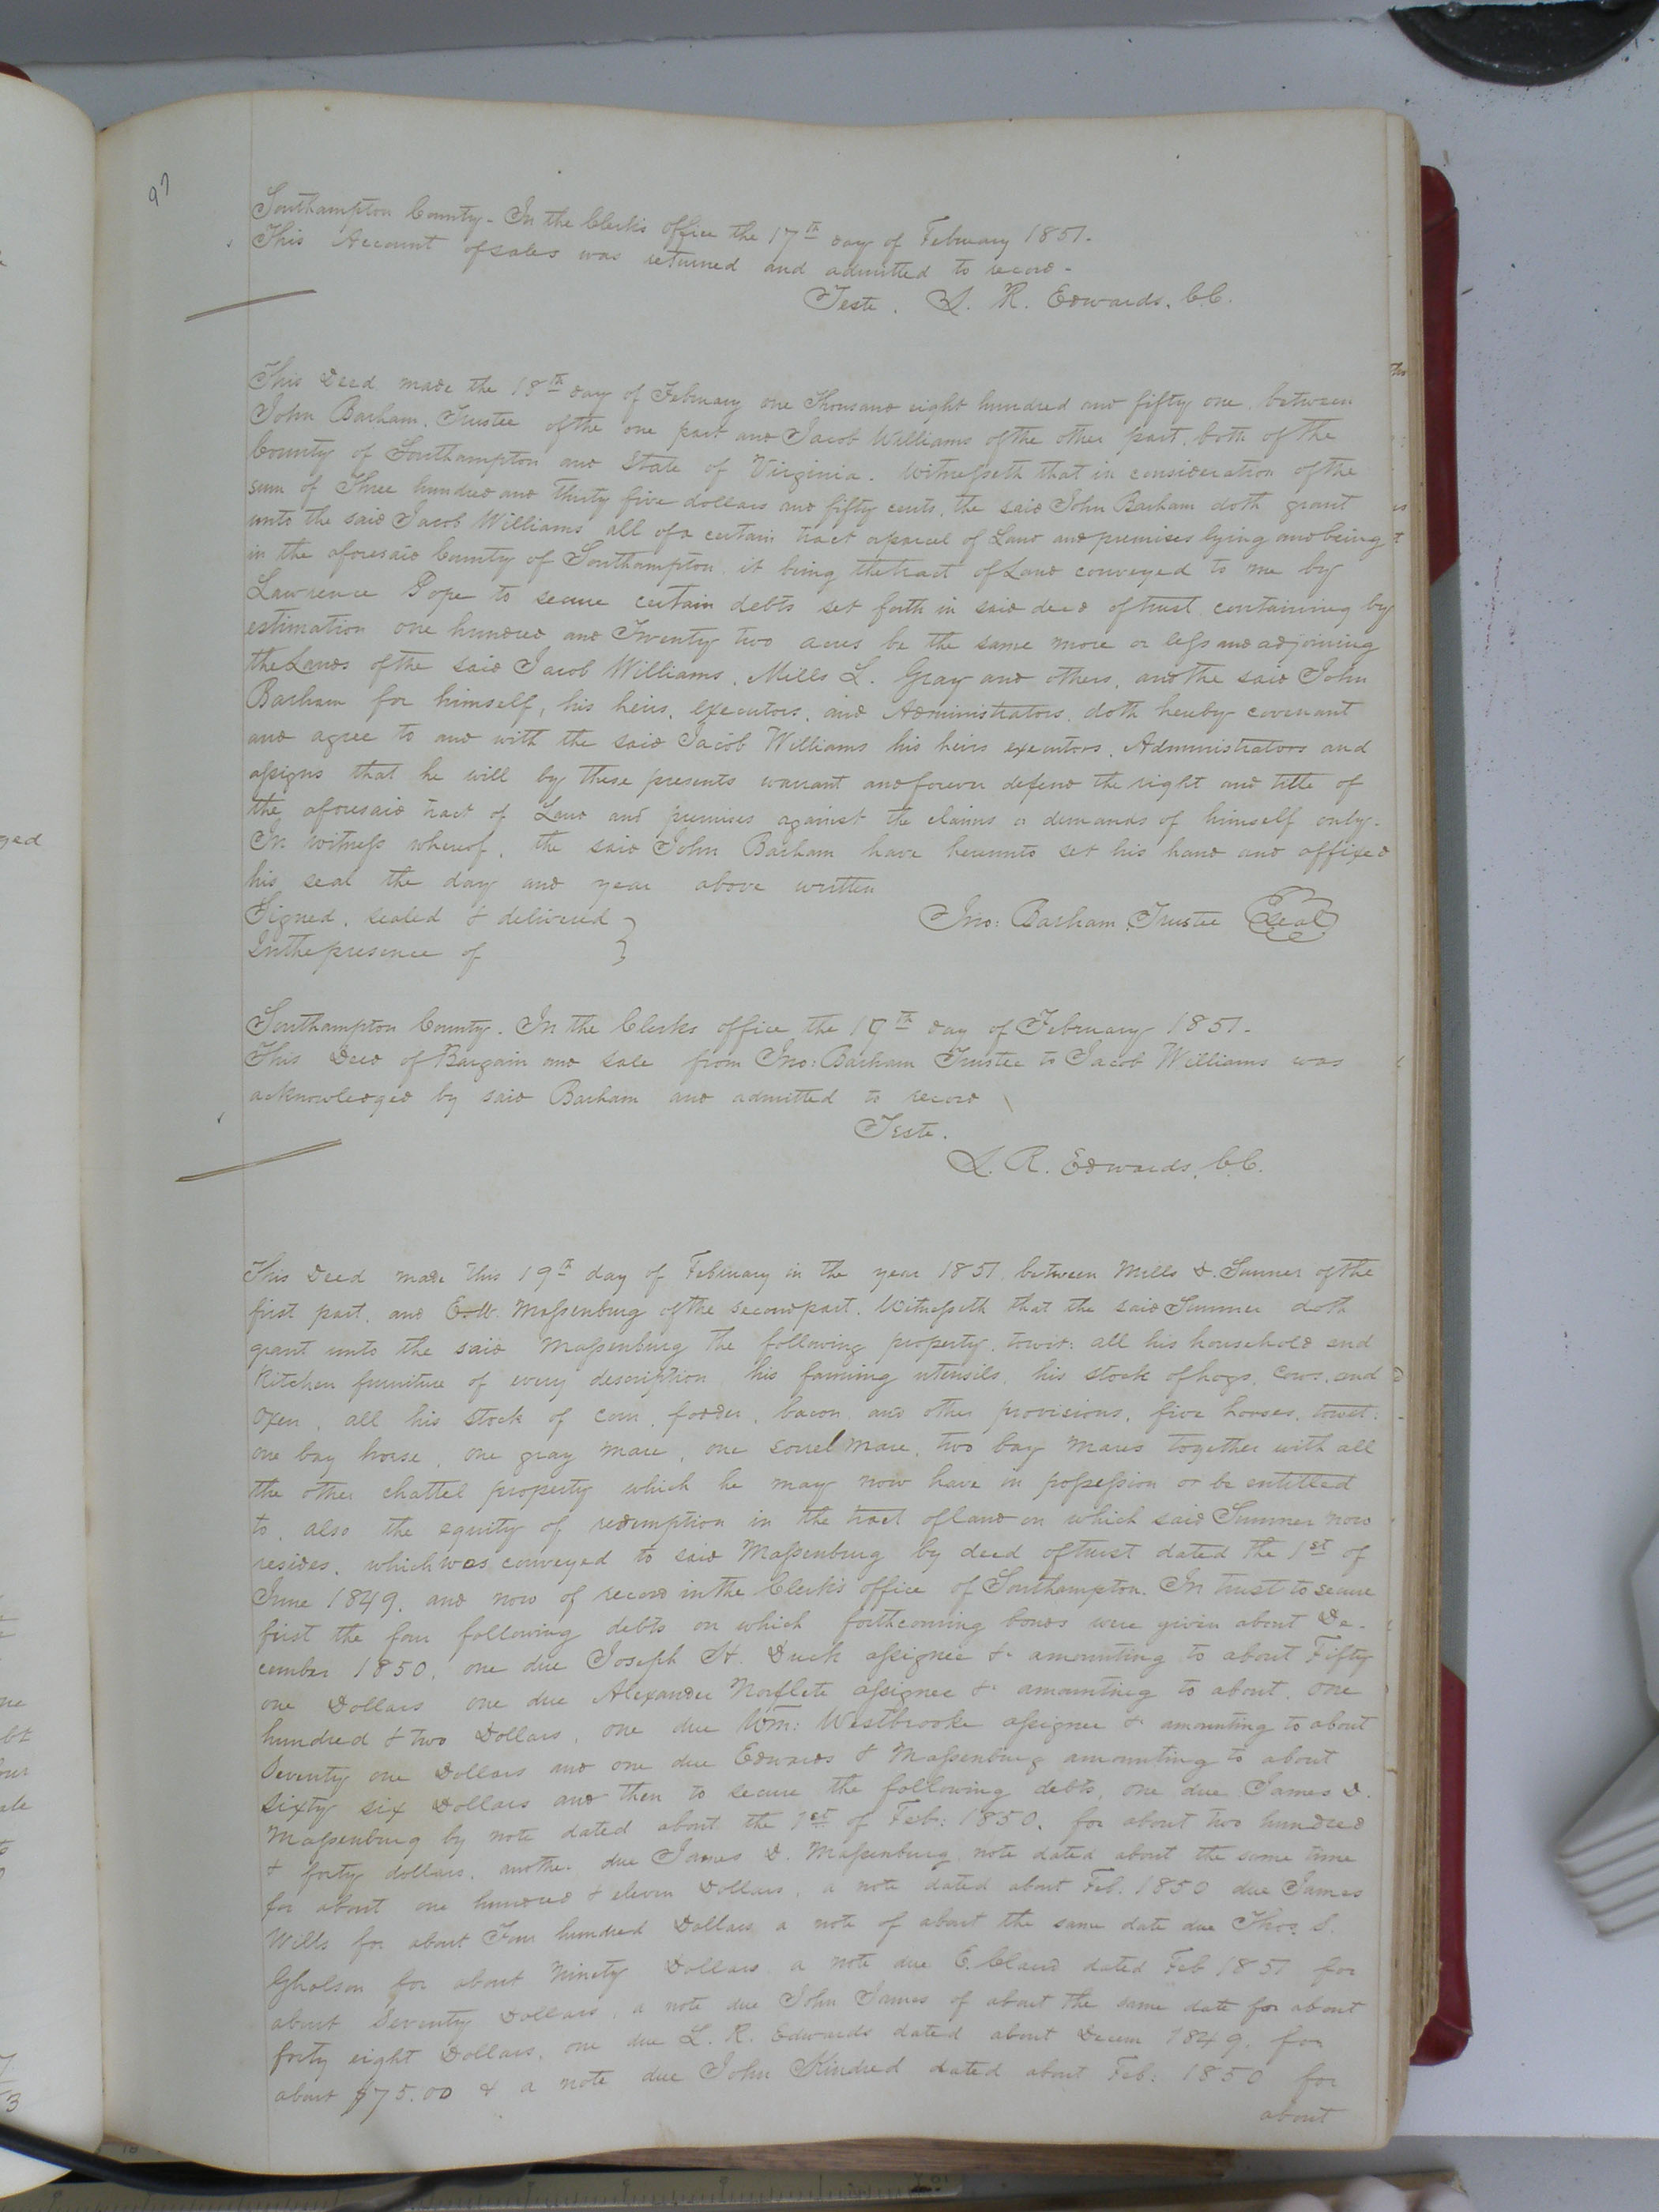 97
Southampton County - In the Clerks office the 17th day of February 1851.
This Account of sales was returned and admitted to record -
Teste. L. R. Edwards, C.C.
This Deed made the 18th day of February one Thousand eight hundred and fifty one, between
John Barham, Trustee of the one part and Jacob Williams of the other part, both of the
County of Southampton and State of Virginia. Witnesseth that in consideration of the
sum of Three hundred and Thirty five dollars and fifty cents, the said John Barham doth grant
unto the said Jacob Williams all of a certain tract or parcel of Land and premises lying and being
in the aforesaid County of Southampton it being the tract of Land conveyed to me by
Lawrence Pope to secure certain debts set forth in said deed of trust containing by
estimation one hundred and Twenty two acres be the same more or less and adjoining
the Lands of the said Jacob Williams, Mills L. Gray and others, and the said John
Barham for himself, his heirs, executors, and Administrators, doth hereby covenant
and agree to and with the said Jacob Williams his heirs executors, Administrators and
assigns that he will by these presents warrant and forever defend the right and title of
the aforesaid tract of Land and premises against the claims or demands of himself only.
In witness whereof, the said John Barham have hereunto set his hand and affixed
his seal the day and year above written
Signed, sealed & delivered } Jno: Barham, Trustee Seal
In the presence of }
Southampton County. In the Clerks office the 19th day of February 1851.
This Deed of Bargain and sale from Jno: Barham Trustee to Jacob Williams was
acknowledged by said Barham and admitted to record
Teste.
L. R. Edwards, C.C.
This Deed made this 19th day of February in the year 1851 between Mills D. Sumner of the
first part, and E. W. Massenburg of the second part. Witnesseth that the said Sumner doth
grant unto the said Massenburg the following property, towit: all his household and
Kitchen furniture of every description, his farming utensils, his stock of hogs, Cows, and
Oxen, all his stock of corn, fodder, bacon and other provisions, five horses, towit:
one bay horse, one gray mare, one sorrel mare, two bay mares together with all
the other chattel property which he may now have in possession or be entitled
to, also the equity of redemption in the tract of land on which said Sumner now
resides, which was conveyed to said Massenburg by deed of trust dated the 1st of
June 1849, and now of record in the Clerk's office of Southampton. In trust to secure
first the four following debts on which forthcoming bonds were given about De-
cember 1850, one due Joseph H. Duck assignee &c amounting to about Fifty
one Dollars one due Alexander Norflete assignee &c amounting to about, one
hundred & two Dollars, one due Wm: Westbrooke assignee &c amounting to about
Seventy one Dollars and one due Edwards & Massenburg amounting to about
sixty six Dollars and then to secure the following debts, one due James D.
Massenburg by note dated about the 1st of Feb: 1850, for about two hundred
& forty dollars, another due James D. Massenburg note dated about the same time
for about one hundred & eleven Dollars, a note dated about Feb. 1850 due James
Wills for about Four hundred Dollars a note of about the same date due Thos. S.
Gholson for about Ninety Dollars a note due E. Claud dated Feb 1851 for
about Seventy Dollars, a note due John James of about the same date for about
forty eight Dollars, one due L. R. Edwards dated about Decem 1849, for
about $75.00 & a note due John Kindred dated about Feb: 1850 for
about